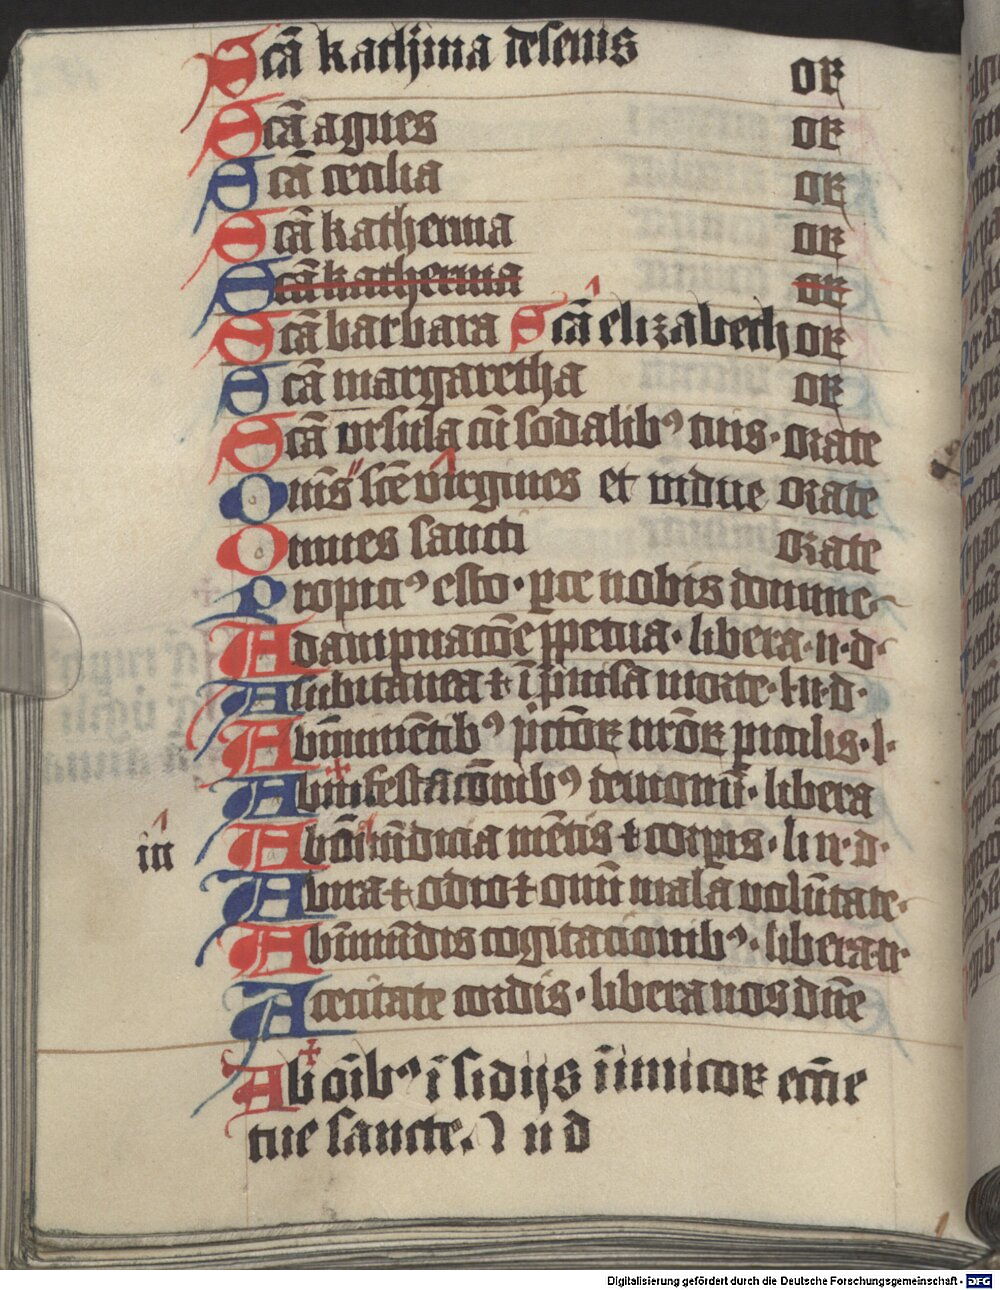 Scā kathīna desenis or
Scā agnes or
Scā cecilia or
Scā katherina or
Scā katherina or
Scā barbara Scā elizabeth or
Scā margaretha or
Scā vrsula cū sodalibꝰ tuis · orate
Omīs scē virgines et vidue orate
Omnes sancti orate
Propiciꝰ esto · pce nobis domine
A dampnacōe ꝑpetua · libera · n · d ·
A subitanea ⁊ īprouisa morte · l · n · d ·
Ab īminētibꝰ pctōꝝ nrōꝝ piculis · l ·
Ab infestacōnibꝰ demonū · libera
in
Ab ōi īmūdicia mētis ⁊ corpis · li n · d ·
Ab ira ⁊ odio ⁊ omī mala volūtate ·
Ab īmūdis cogitacionibꝰ · libera · n ·
A cecitate cordis · libera nos dn̄e
Ab oībꝰ īsidijs inimicoꝝ eccīe
tue sancte. l n d
Digitalisierung gefördert durch die Deutsche Forschungsgemeinschaft - DFG